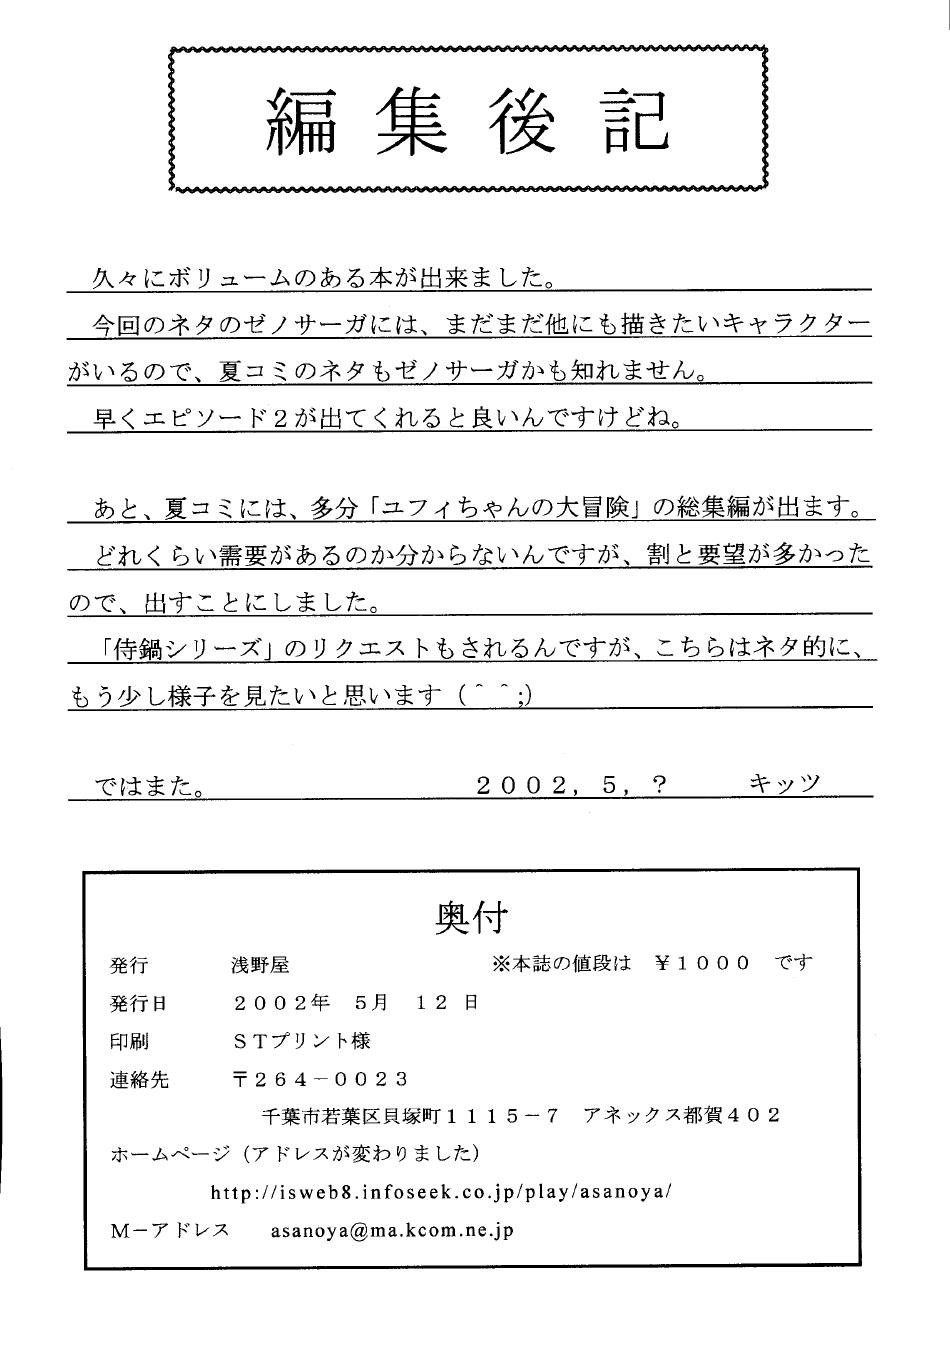 編集後記
久々にボリュームのある本が出来ました。
今回のネタのゼノサーガには、まだまだ他にも描きたいキャラクター
がいるので、夏コミのネタもゼノサーガかも知れません。
早くエピソード２が出てくれると良いんですけどね。
あと、夏コミには、多分「ユフィちゃんの大冒険」の総集編が出ます。
どれくらい需要があるのか分からないんですが、割と要望が多かった
ので、出すことにしました。
「侍鍋シリーズ」のリクエストもされるんですが、こちらはネタ的に、
もう少し様子を見たいと思います（＾＾;）
ではまた。　２００２，５，？　キッツ
奥付
発行　浅野屋　※本誌の値段は　￥１０００　です
発行日　２００２年　５月　１２日
印刷　ＳＴプリント様
連絡先　〒２６４－００２３
千葉市若葉区貝塚町１１１５－７　アネックス都賀４０２
ホームページ（アドレスが変わりました）
http://isweb8.infoseek.co.jp/play/asanoya/
Ｍ－アドレス　asanoya@ma.kcom.ne.jp